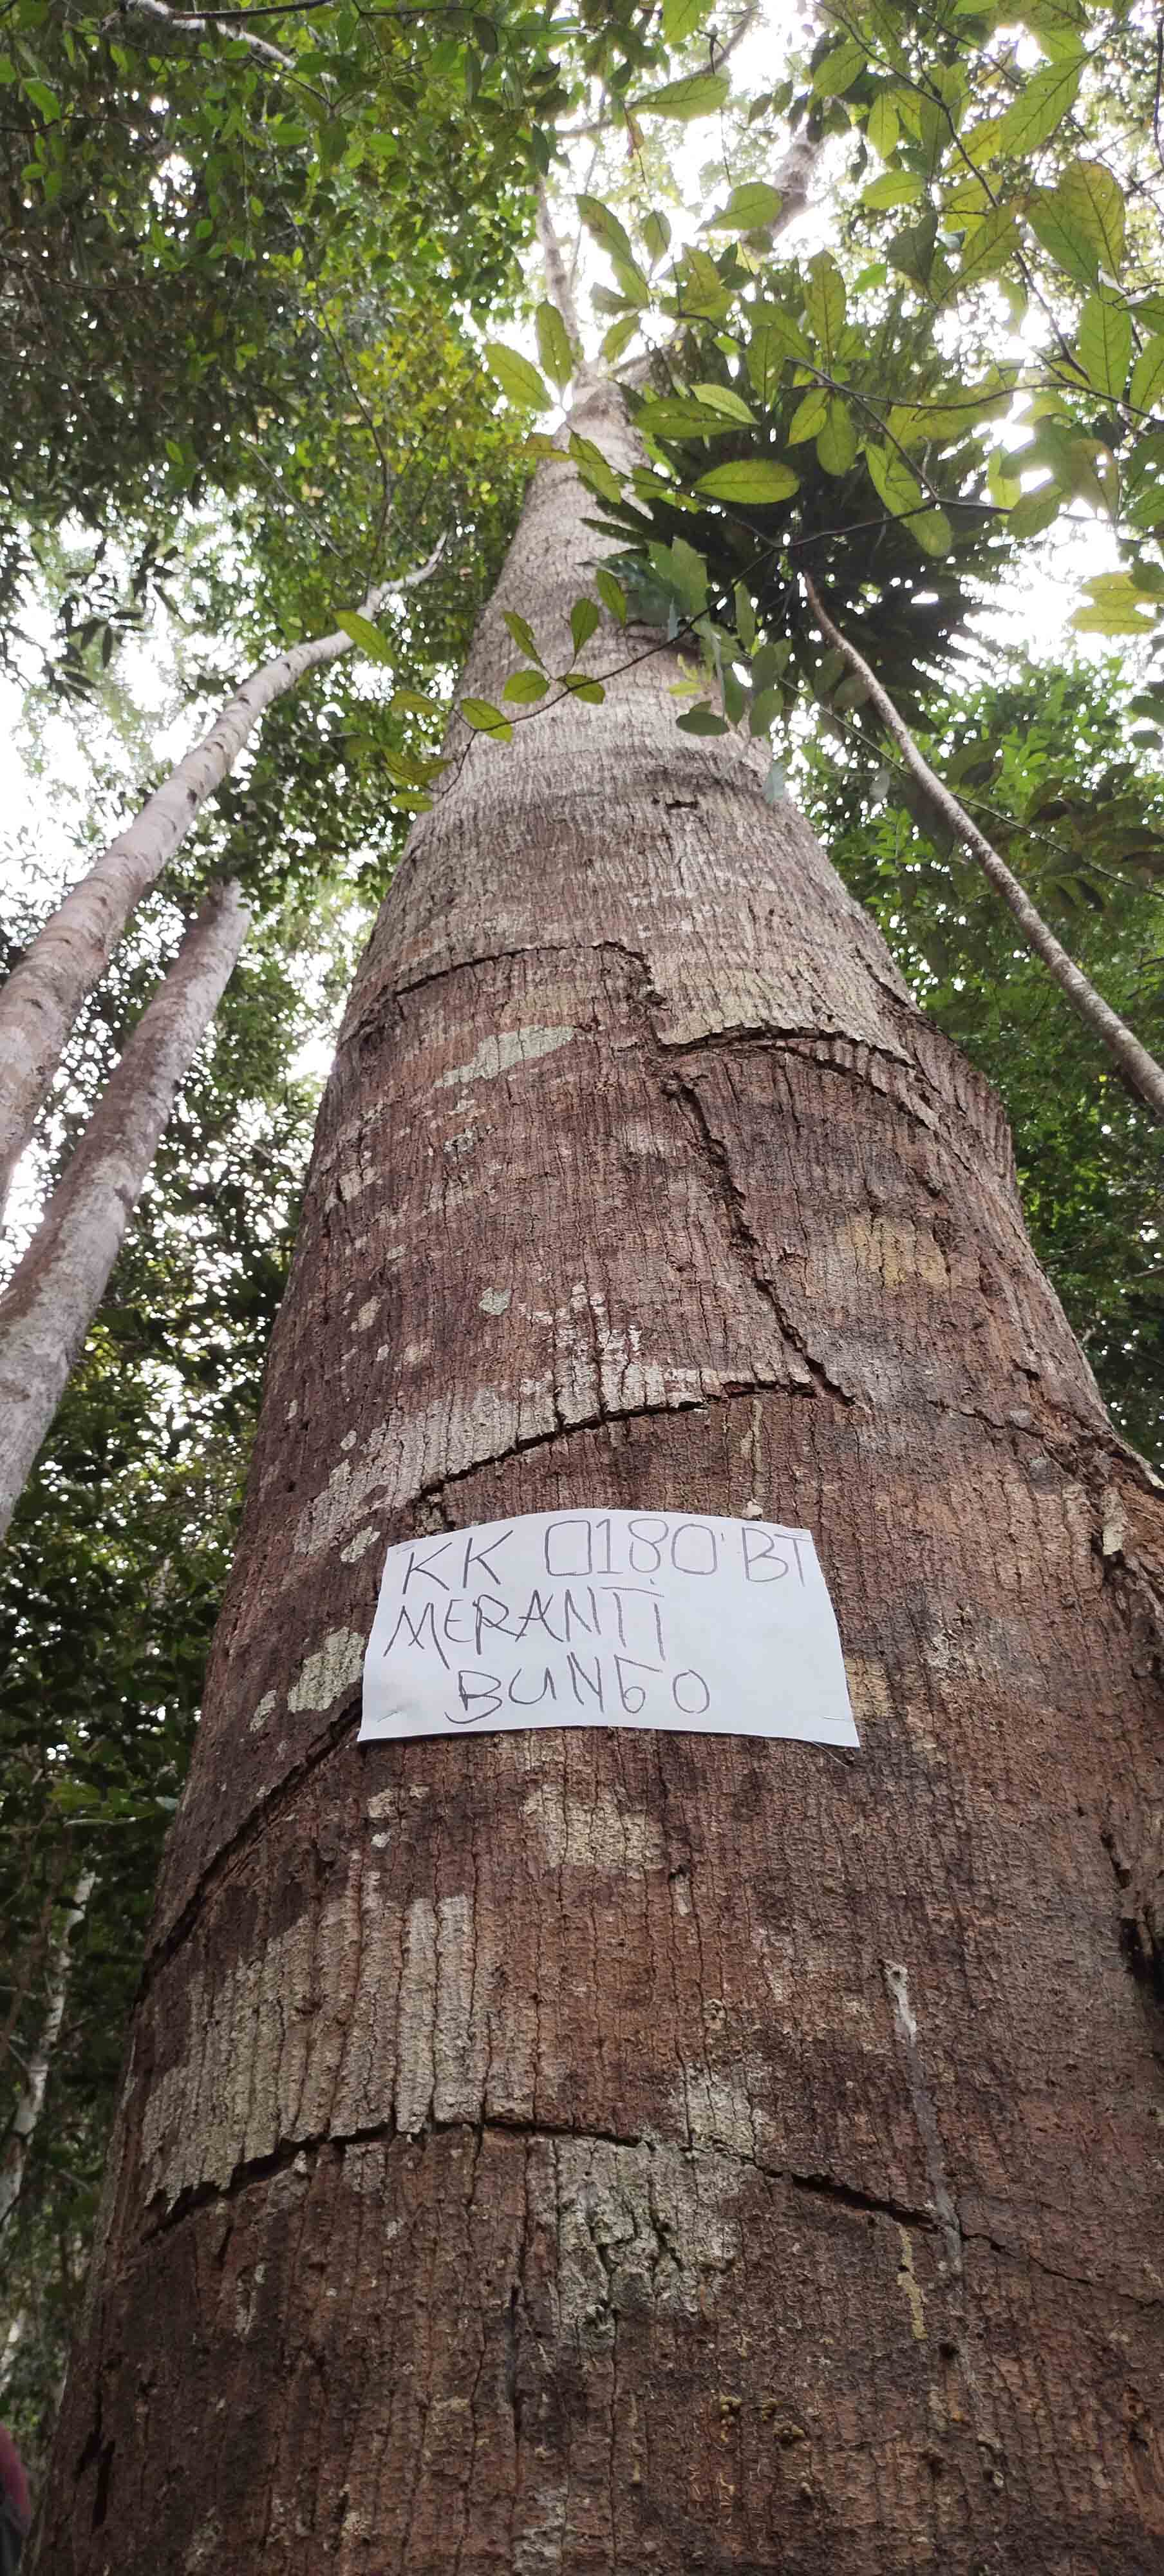 KK 0180 BT
MERANTI
BUNGO